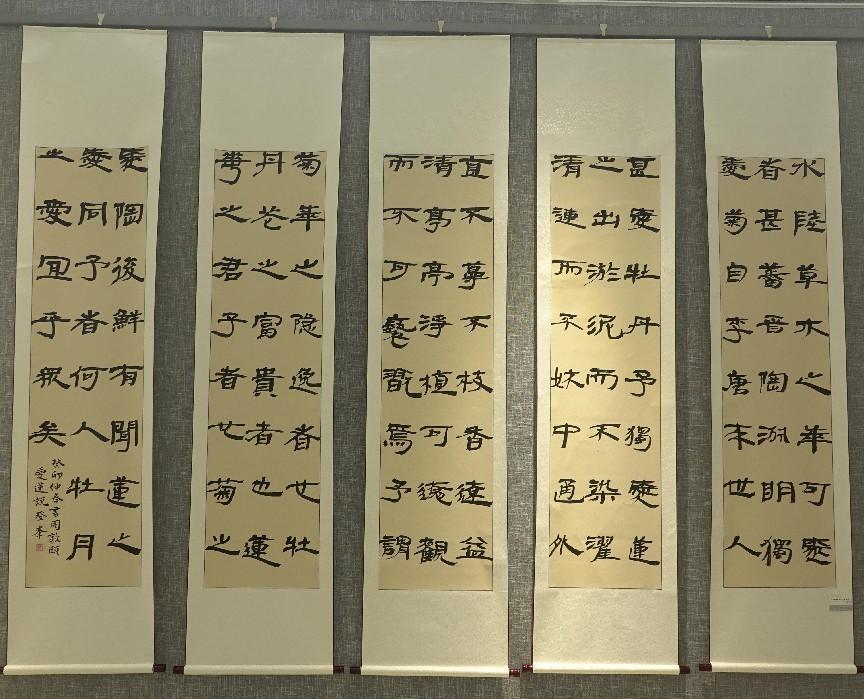 水陸草木之華可愛
者甚蕃晉陶淵明獨
愛菊自李唐来世人
甚愛牡丹予獨愛蓮
之出淤泥而不染濯
清漣而不妖中通外
直不蔓不枝香遠益
清亭亭淨植可遠觀
而不可褻翫焉予謂
菊華之隐逸者也牡
丹花之富貴者也蓮
華之君子者也菊之
愛陶後鮮有聞蓮之
愛同予者何人牡丹
之愛宜乎衆矣
癸卯仲春書周敦頤
愛蓮説登峯